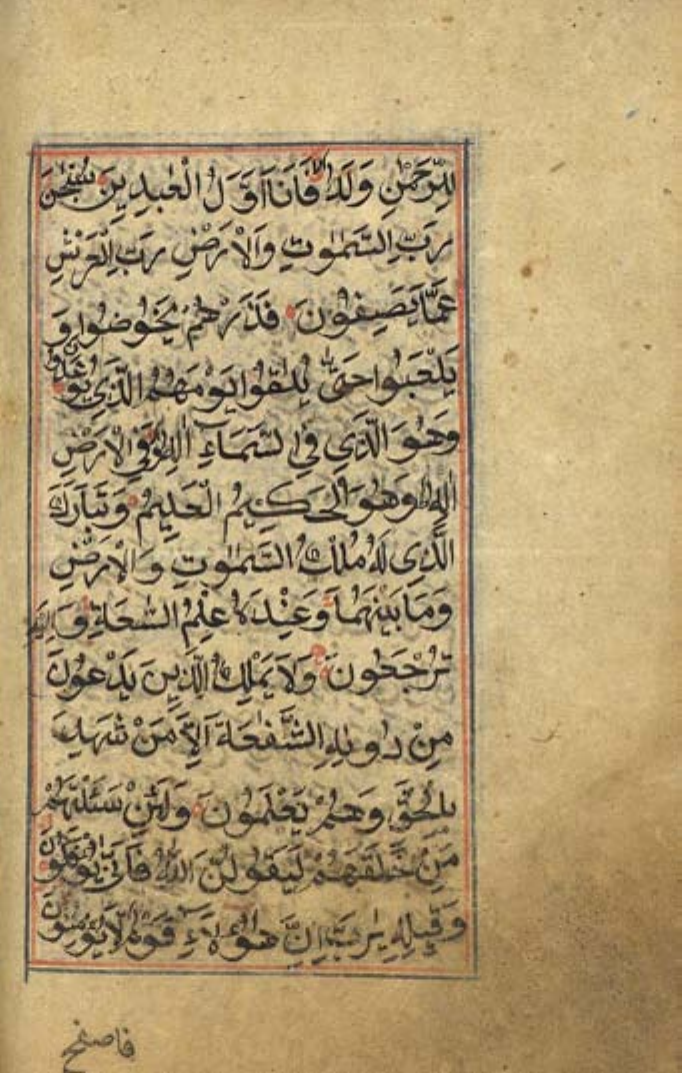 للرحمن ولد فانا اول العبدين سبحن
رب السموت والارض رب العرش
عما يصفون فذرهم يخوضوا و
يلعبوا حتى يلقوا يومهم الذي يوعدون
وهو الذي في السماء اله وفي الارض
اله وهو الحكيم العليم وتبارك
الذي له ملك السموت والارض
وما بينهما وعنده علم الساعة واليه
ترجعون ولا يملك الذين يدعون
من دونه الشفعة الا من شهد
بالحق وهم يعلمون ولئن سئلتهم
من خلقهم ليقولن الله فانى يؤفكون
وقيله يرب ان هؤلاء قوم لا يؤمنون
فاصفح